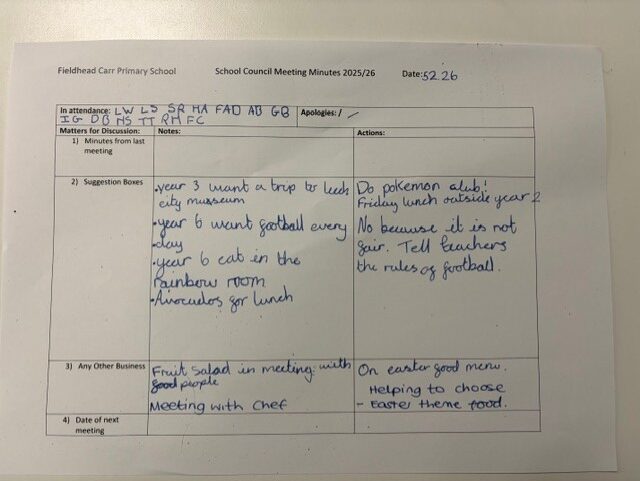 Fieldhead Carr Primary School School Council Meeting Minutes 2025/26 Date: 52 26
In attendance: LW LS SR MA FAD AB GB
IG DB NS TT RM FC
Apologies: /
Matters for Discussion: Notes: Actions:
1) Minutes from last
meeting
2) Suggestion Boxes
•year 3 want a trip to leeds
city musseum
•year 6 want football every
•day
•year 6 eat in the
rainbow room
•Avocados for lunch
Do pokemon club!
Friday lunch outside year 2
No because it is not
fair. Tell teachers
the rules of football.
3) Any Other Business
Fruit Salad in meeting with
good people
Meeting with Chef
On easter food menu.
Helping to choose
- Easter theme food.
4) Date of next
meeting